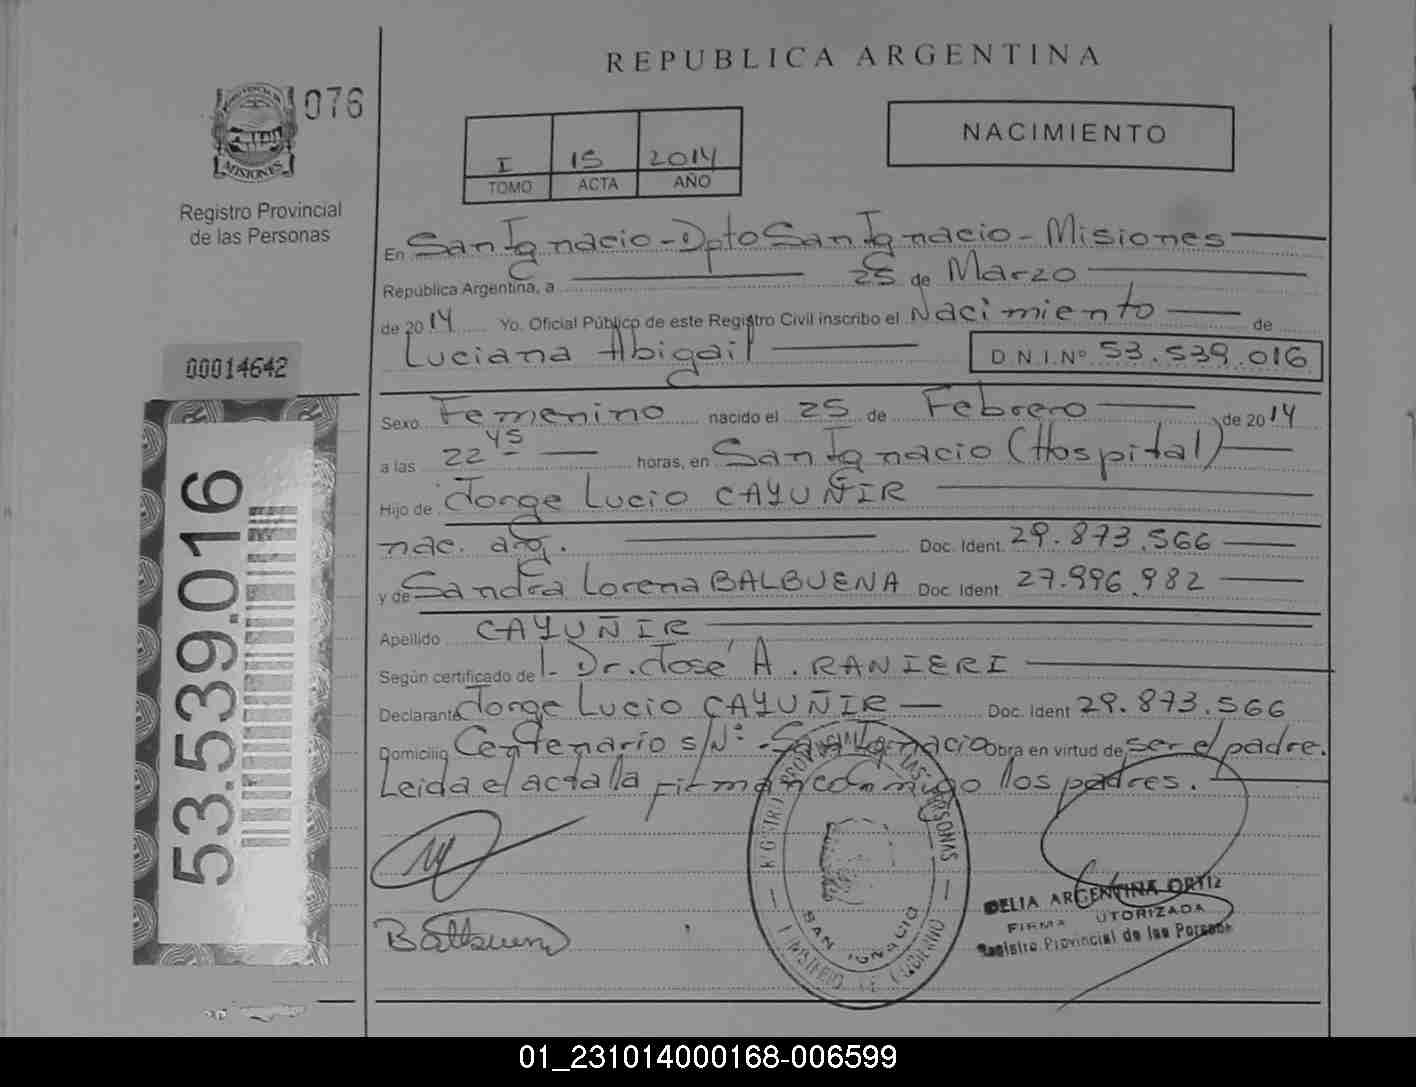 REPUBLICA ARGENTINA
PROVINCIA DE
MISIONES
076
Registro Provincial
de las Personas
I 15 2014
TOMO ACTA AÑO
NACIMIENTO
En San Ignacio - Dpto San Ignacio - Misiones
República Argentina, a 25 de Marzo
de 2014 Yo. Oficial Público de este Registro Civil inscribo el Nacimiento de
Luciana Abigail D.N.I.Nº 53.539.016
00014642
53.539.016
Sexo Femenino nacido el 25 de Febrero de 2014
a las 22 45 horas, en San Ignacio (Hospital)
Hijo de Jorge Lucio CAYUÑIR
nac. arg. Doc. Ident. 29.873.566
y de Sandra Lorena BALBUENA Doc. Ident. 27.996.982
Apellido CAYUÑIR
Según certificado de l- Dr. José A. RANIERI
Declarante Jorge Lucio CAYUÑIR Doc. Ident 29.873.566
Domicilio Centenario s/Nº - San Ignacio Obra en virtud de ser el padre.
Leida el acta la firman conmigo llos padres.
Balbuena
REGISTRO PROVINCIAL DE LAS PERSONAS
SAN IGNACIO
MINISTERIO DE GOBIERNO
DELIA ARGENTINA ORTIZ
FIRMA AUTORIZADA
Registro Provincial de las Personas
01_231014000168-006599